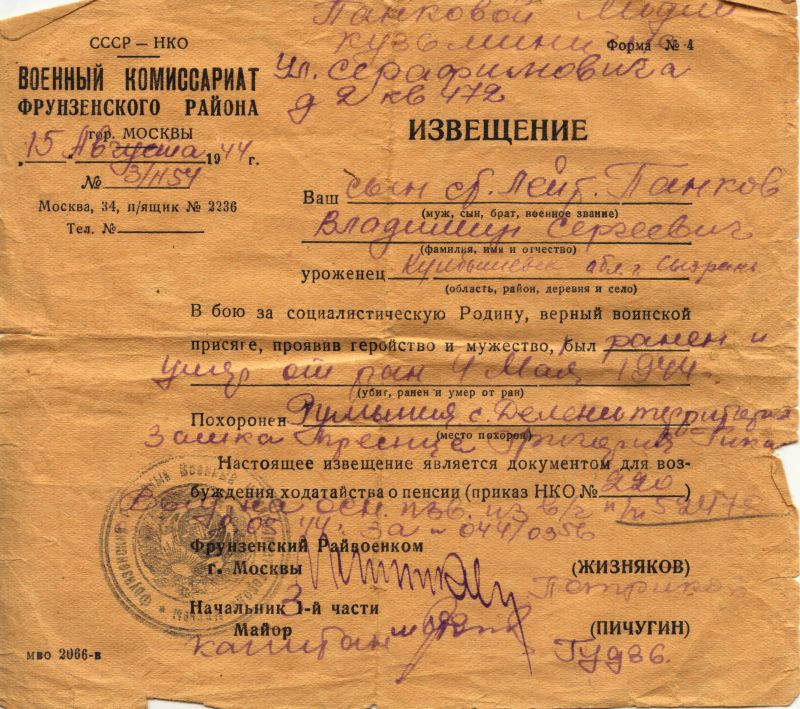 Панковой Лидии
Кузьминичне
Ул. Серафимовича
д 2 кв 472
СССР — НКО
Форма № 4
ВОЕННЫЙ КОМИССАРИАТ
ФРУНЗЕНСКОГО РАЙОНА
гор. МОСКВЫ
„15" Августа 1944 г.
№ 3/1154
Москва, 34, п/ящик № 2236
Тел. №
ИЗВЕЩЕНИЕ
Ваш сын ст. Лейт. Панков
(муж, сын, брат, военное звание)
Владимир Сергеевич
(фамилия, имя и отчество)
уроженец Куйбышевск обл. г. Сызрань
(область, район, деревня и село)
В бою за социалистическую Родину, верный воинской
присяге, проявив геройство и мужество, был ранен и
умер от ран 4 Мая 1944 г.
(убит, ранен и умер от ран)
Похоронен Румыния с. Делени территория
(место похорон)
замка Григория Гика
Настоящее извещение является документом для воз-
буждения ходатайства о пенсии (приказ НКО № 220)
на осн. изв. из в/ч п/п 52478
05 44 г. за № 044/0356
Фрунзенский Райвоенком
г. Москвы
(ЖИЗНЯКОВ)
Начальник 3 1-й части
Майор
(ПИЧУГИН)
капитан
Гудзь.
мво 2066-в